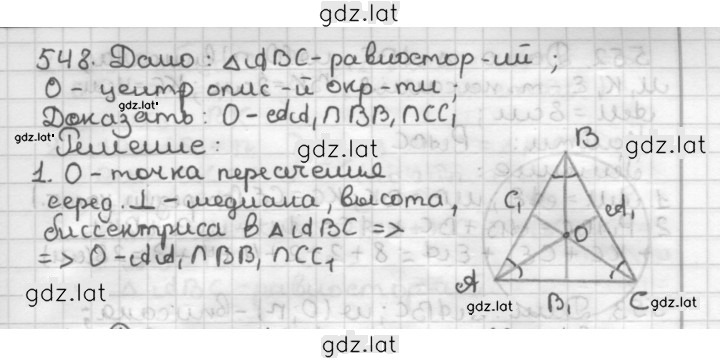 gdz.lat
548. Дано: △ABC - равностор-ий;
O - центр опис-й окр-ти;
gdz.lat
Доказать: O - AA₁∩BB₁∩CC₁
Решение:
gdz.lat
gdz.lat
1. O - точка пересечения
серед. ⊥ - медиана, высота,
биссектриса в △ABC =>
=> O - AA₁∩BB₁∩CC₁
gdz.lat
B
gdz.lat
C₁
A₁
O
A
B₁
C
gdz.lat
gdz.lat
gdz.lat